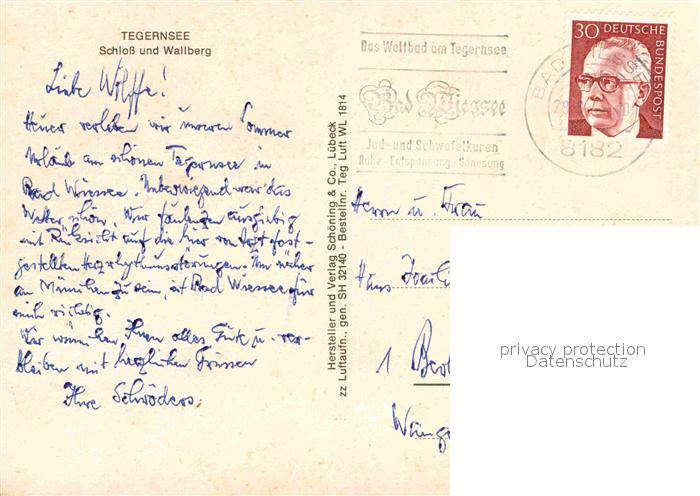 TEGERNSEE
Schloß und Wallberg
Liebe Wölffe!
Heuer verleben wir unseren Sommer
Urlaub am schönen Tegernsee in
Bad Wiessee. Überwiegend war das
Wetter schön. Wir faulenzen ausgiebig
mit Rücksicht auf die hier von Arzt fest-
gestellten Herzrhythmusstörungen. Um näher
an München zu sein, ist Bad Wiessee für
mich richtig.
Wir wünschen Ihnen alles Gute u. ver-
bleiben mit herzlichen Grüssen
Ihre Schröders.
Hersteller und Verlag Schöning & Co., Lübeck
zz Luftaufn., gen. SH 32140 - Bestellnr. Teg Luft WL 1814
Das Weltbad am Tegernsee
Bad Wiessee
Jod- und Schwefelkuren
Ruhe - Entspannung - Genesung
BAD
8182
30 DEUTSCHE
BUNDESPOST
Herrn u. Frau
Hans
1 Berl
privacy protection
Datenschutz